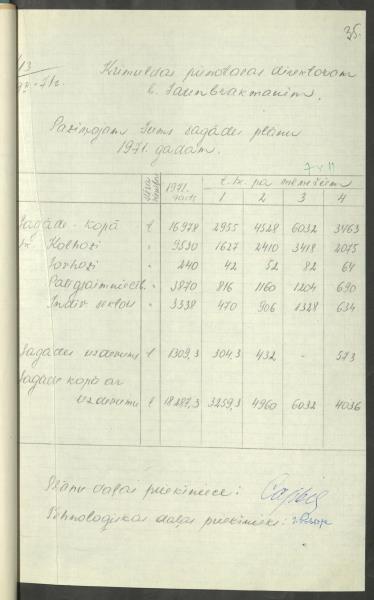 35.
13
Krimuldas pienotavas direktoram
b.
Paziņojam Jums sagādes plānu
1971. gadam.
1971. gads t.sk. pa mēnešiem
1 2 3 4
Sagāde - kopā t 16978 2955 4528 6032 3463
t.sk. Kolhozi " 9530 1627 2410 3418 2075
Sovhozi " 240 42 52 82 64
Palīgsaimniecīb. " 3870 816 1160 1204 690
Indiv. sektors " 3338 470 906 1328 634
Sagādes uzdevums t 1309,3 304,3 432 - 573
Sagāde kopā ar
uzdevumu t 18287,3 3259,3 4960 6032 4036
Plānu daļas priekšniece:
Tehnoloģiskās daļas priekšnieks: